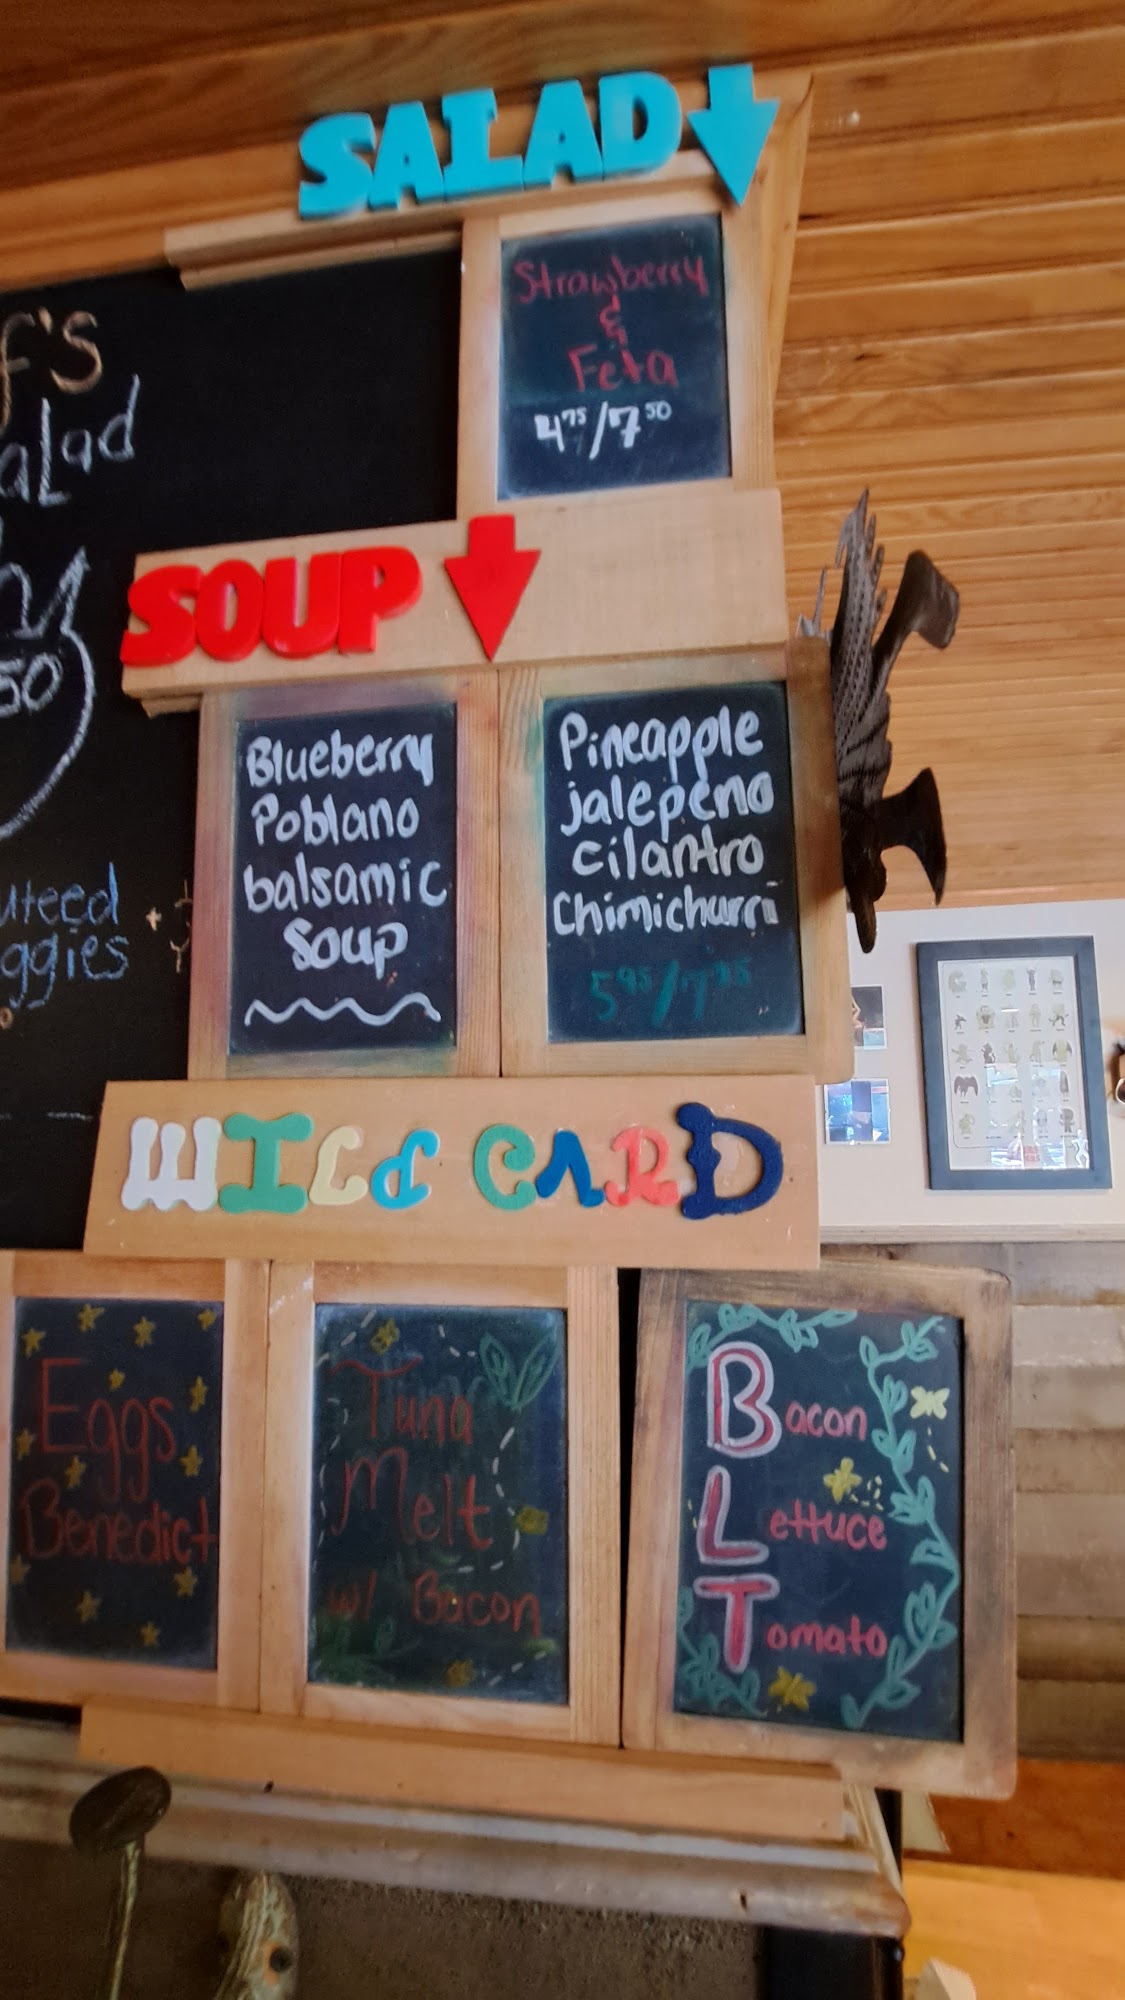 SALAD
Strawberry
&
Feta
4.75/7.50
f's
alad
50
SOUP
Blueberry
Poblano
balsamic
Soup
Pineapple
jalepeno
cilantro
Chimichurri
5.95/7.95
uteed
ggies
WILd CARD
Eggs
Benedict
Tuna
Melt
w/ Bacon
Bacon
Lettuce
Tomato